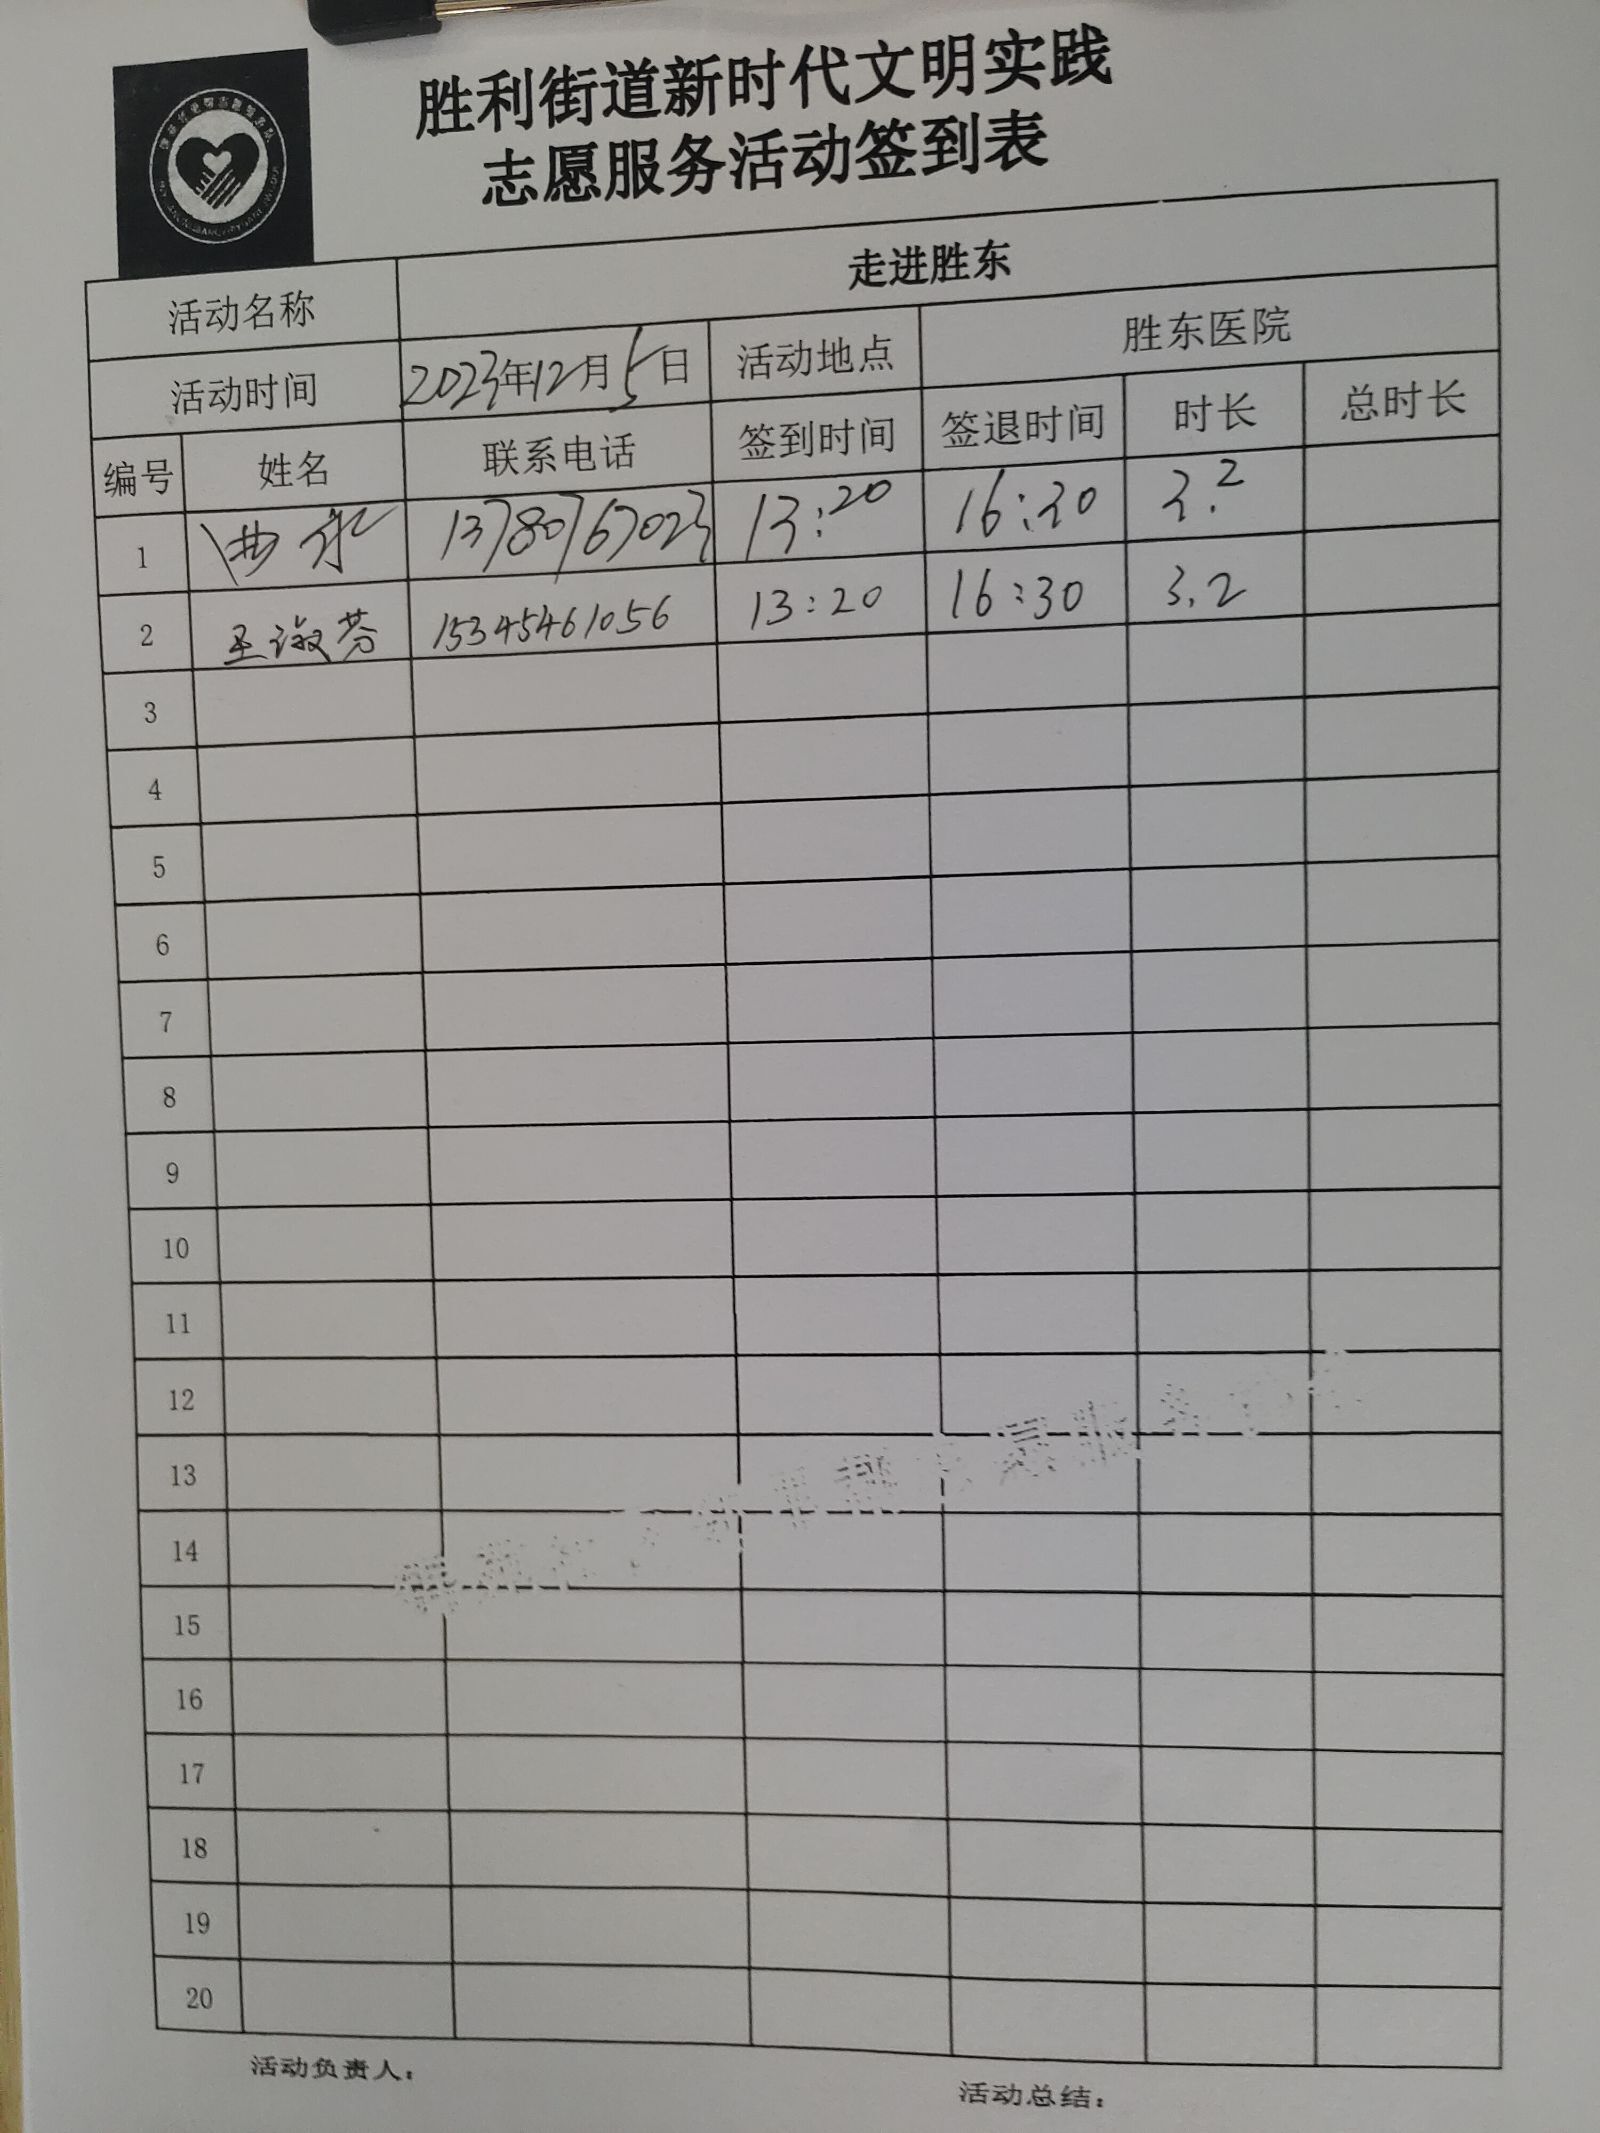 胜利街道新时代文明实践
志愿服务活动签到表
活动名称 走进胜东
活动时间 2023年12月5日 活动地点 胜东医院
编号 姓名 联系电话 签到时间 签退时间 时长 总时长
1 13780767023 13:20 16:30 3.2
2 王淑芬 15345461056 13:20 16:30 3.2
3
4
5
6
7
8
9
10
11
12
13
14
15
16
17
18
19
20
活动负责人：
活动总结：